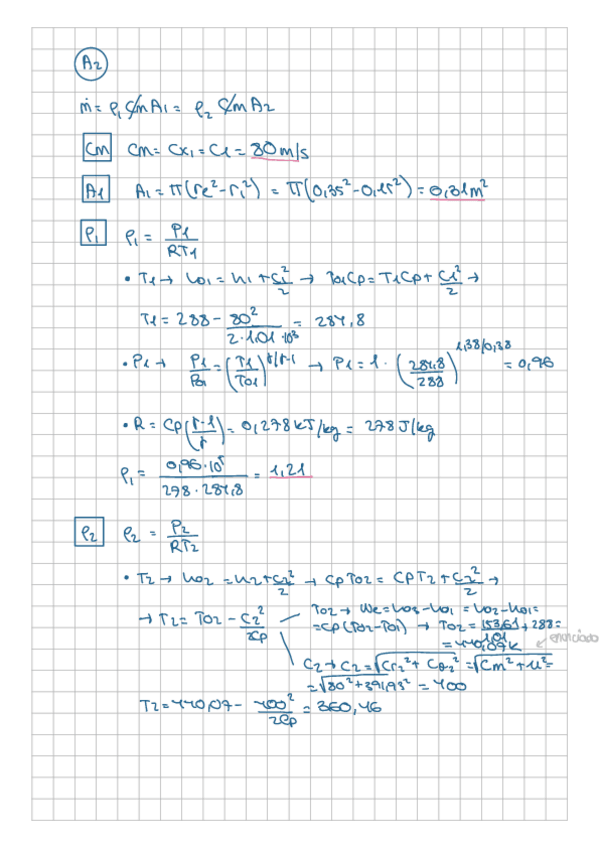 A2
ṁ = ρ1 CmA1 = ρ2 CmA2
Cm Cm = Cx1 = C1 = 80 m/s
A1 A1 = π(re² - ri²) = π(0,35² - 0,15²) = 0,31m²
ρ1 ρ1 = P1/RT1
• T1 → h01 = h1 + C1²/2 → T01Cp = T1Cp + C1²/2 →
T1 = 288 - 80²/2·1,01·10³ = 284,8
• P1 → P1/P01 = (T1/T01)^r/r-1 → P1 = 1 · (284,8/288)^1,38/0,38 = 0,96
• R = Cp(r-1/r) = 0,278 kJ/kg = 278 J/kg
ρ1 = 0,96·10⁵/278·284,8 = 1,21
ρ2 ρ2 = P2/RT2
• T2 → h02 = h2 + C2²/2 → CpT02 = CPT2 + C2²/2 →
→ T2 = T02 - C2²/2Cp
T02 → Wc = h03 - h01 = h02 - h01 =
= Cp(T02 - T01) → T02 = 153,61/1,01 + 288 =
= 440,07K
enunciado
C2 → C2 = √Cr2² + Cθ2² = √Cm² + u² =
= √80² + 391,93² = 400
T2 = 440,07 - 400²/2Cp = 360,46